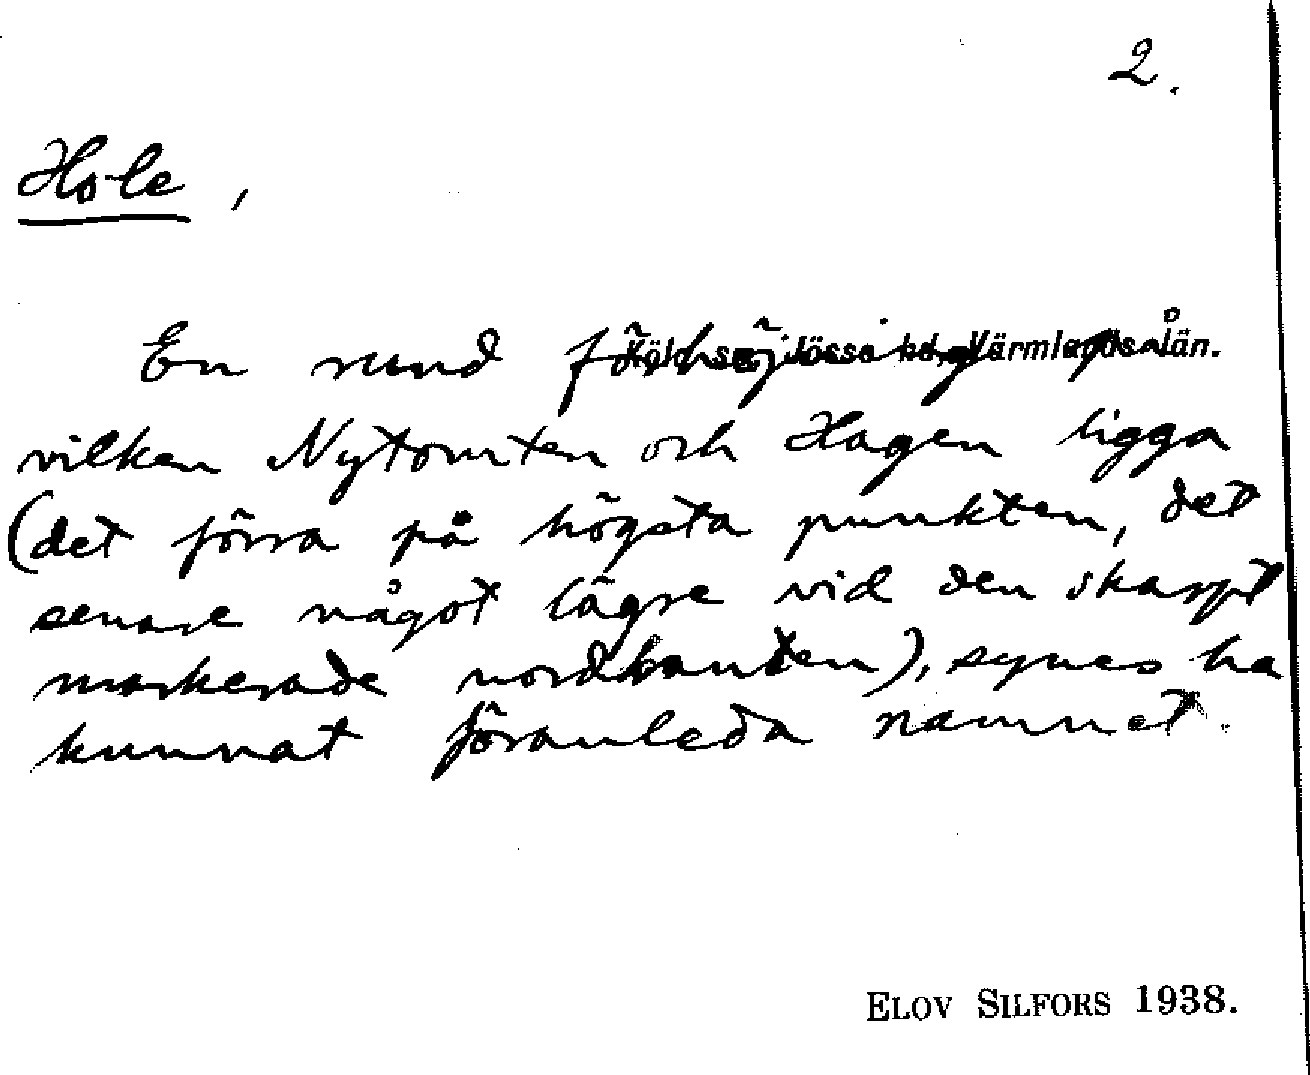 2.
Hole,
En rund förhöjning på
Köla sn, Jösse hd, Värmlands län.
vilken Nytomten och Hagen ligga
(det förra på högsta punkten, det
senare något lägre vid den skarpt
markerade nordkanten), synes ha
kunnat föranleda namnet.
ELOV SILFORS 1938.